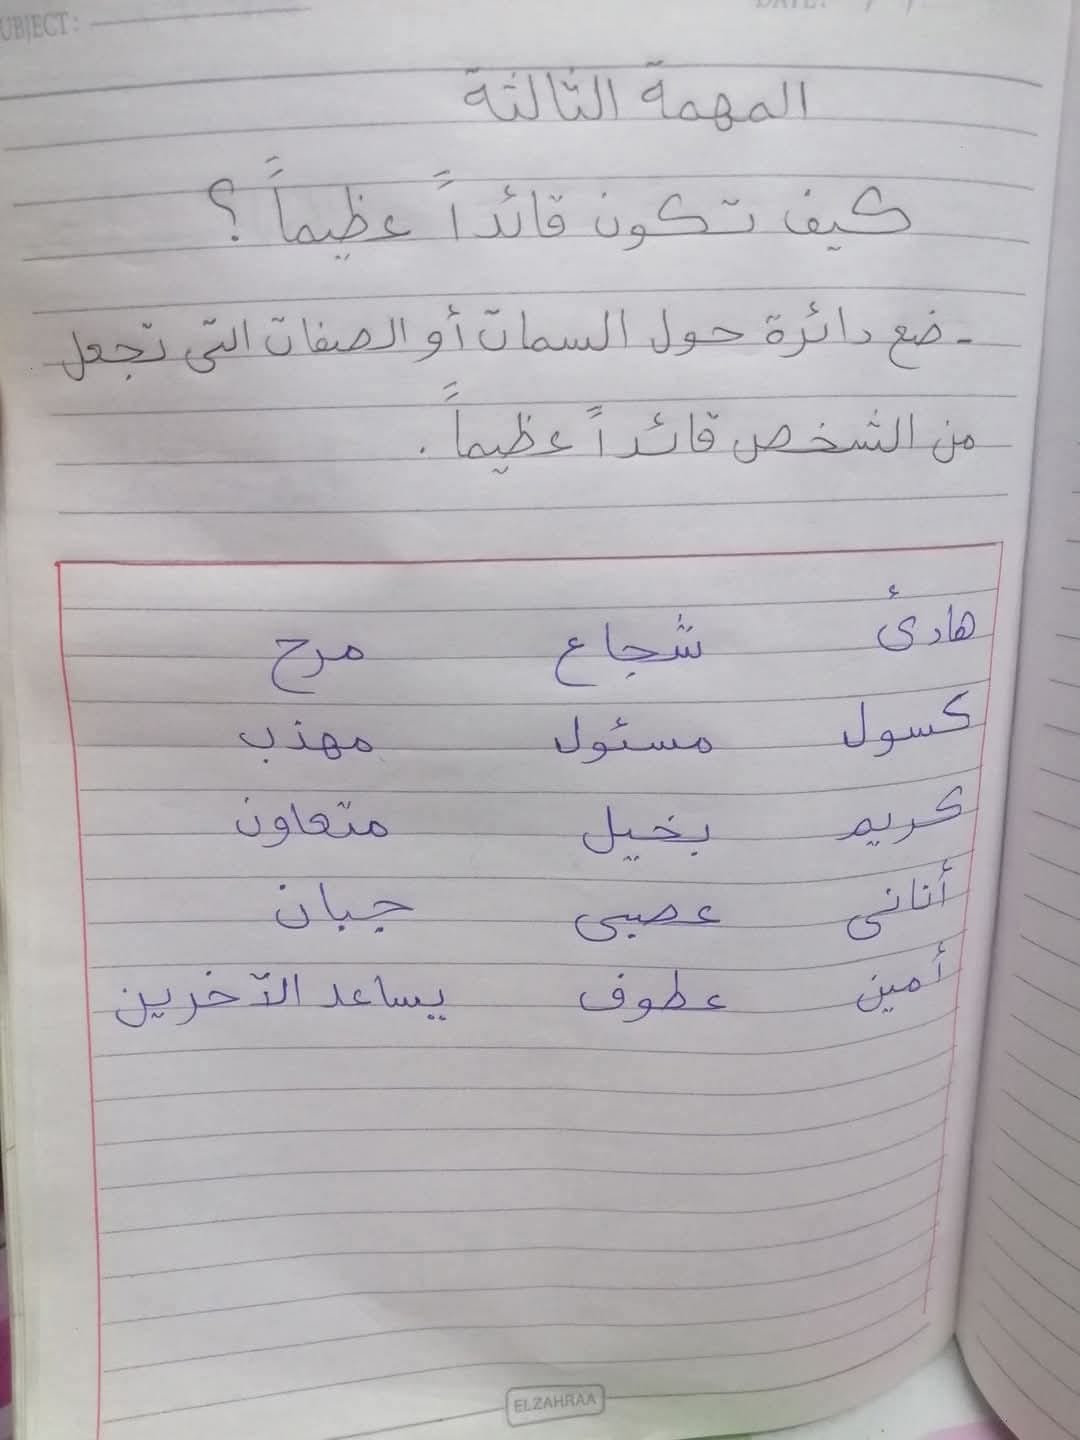 UBJECT:
DATE: / /
المهمة الثالثة
كيف تكون قائداً عظيماً ؟
- ضع دائرة حول السمات أو الصفات التى تجعل
من الشخص قائداً عظيماً .
هادئ شجاع مرح
كسول مسئول مهذب
كريم بخيل متعاون
أنانى عصبى جبان
أمين عطوف يساعد الآخرين
ELZAHRAA